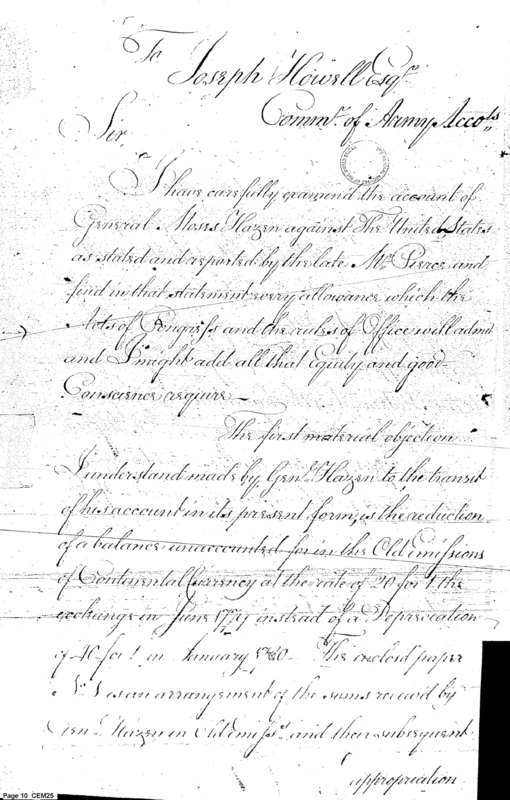 To
Joseph Howell Esqr.
Commr. of Army Accots
Sir,
I have carefully examind the account of
General Moses Hazen against The United States
as stated and reported by the late Mr. Pierce and
find in that statement every allowance which the
Acts of Congress and the rules of Office will admit
and I might add all that Equity and good
Conscience require —
The first material objection
I understand made by Genl. Hazen to the transit
of his account in its present form, is the reduction
of a balance unaccounted for in the Old Emissions
of Continental Currency at the rate of 20 for 1 the
exchange in June 1779 instead of a Depreciation
of 40 for 1 in January 1780 — The enclosed paper
No. 1 is an arrangement of the sums received by
Genl. Hazen in Old Emisss. and their subsequent
appropriation
Page 10 CEM25